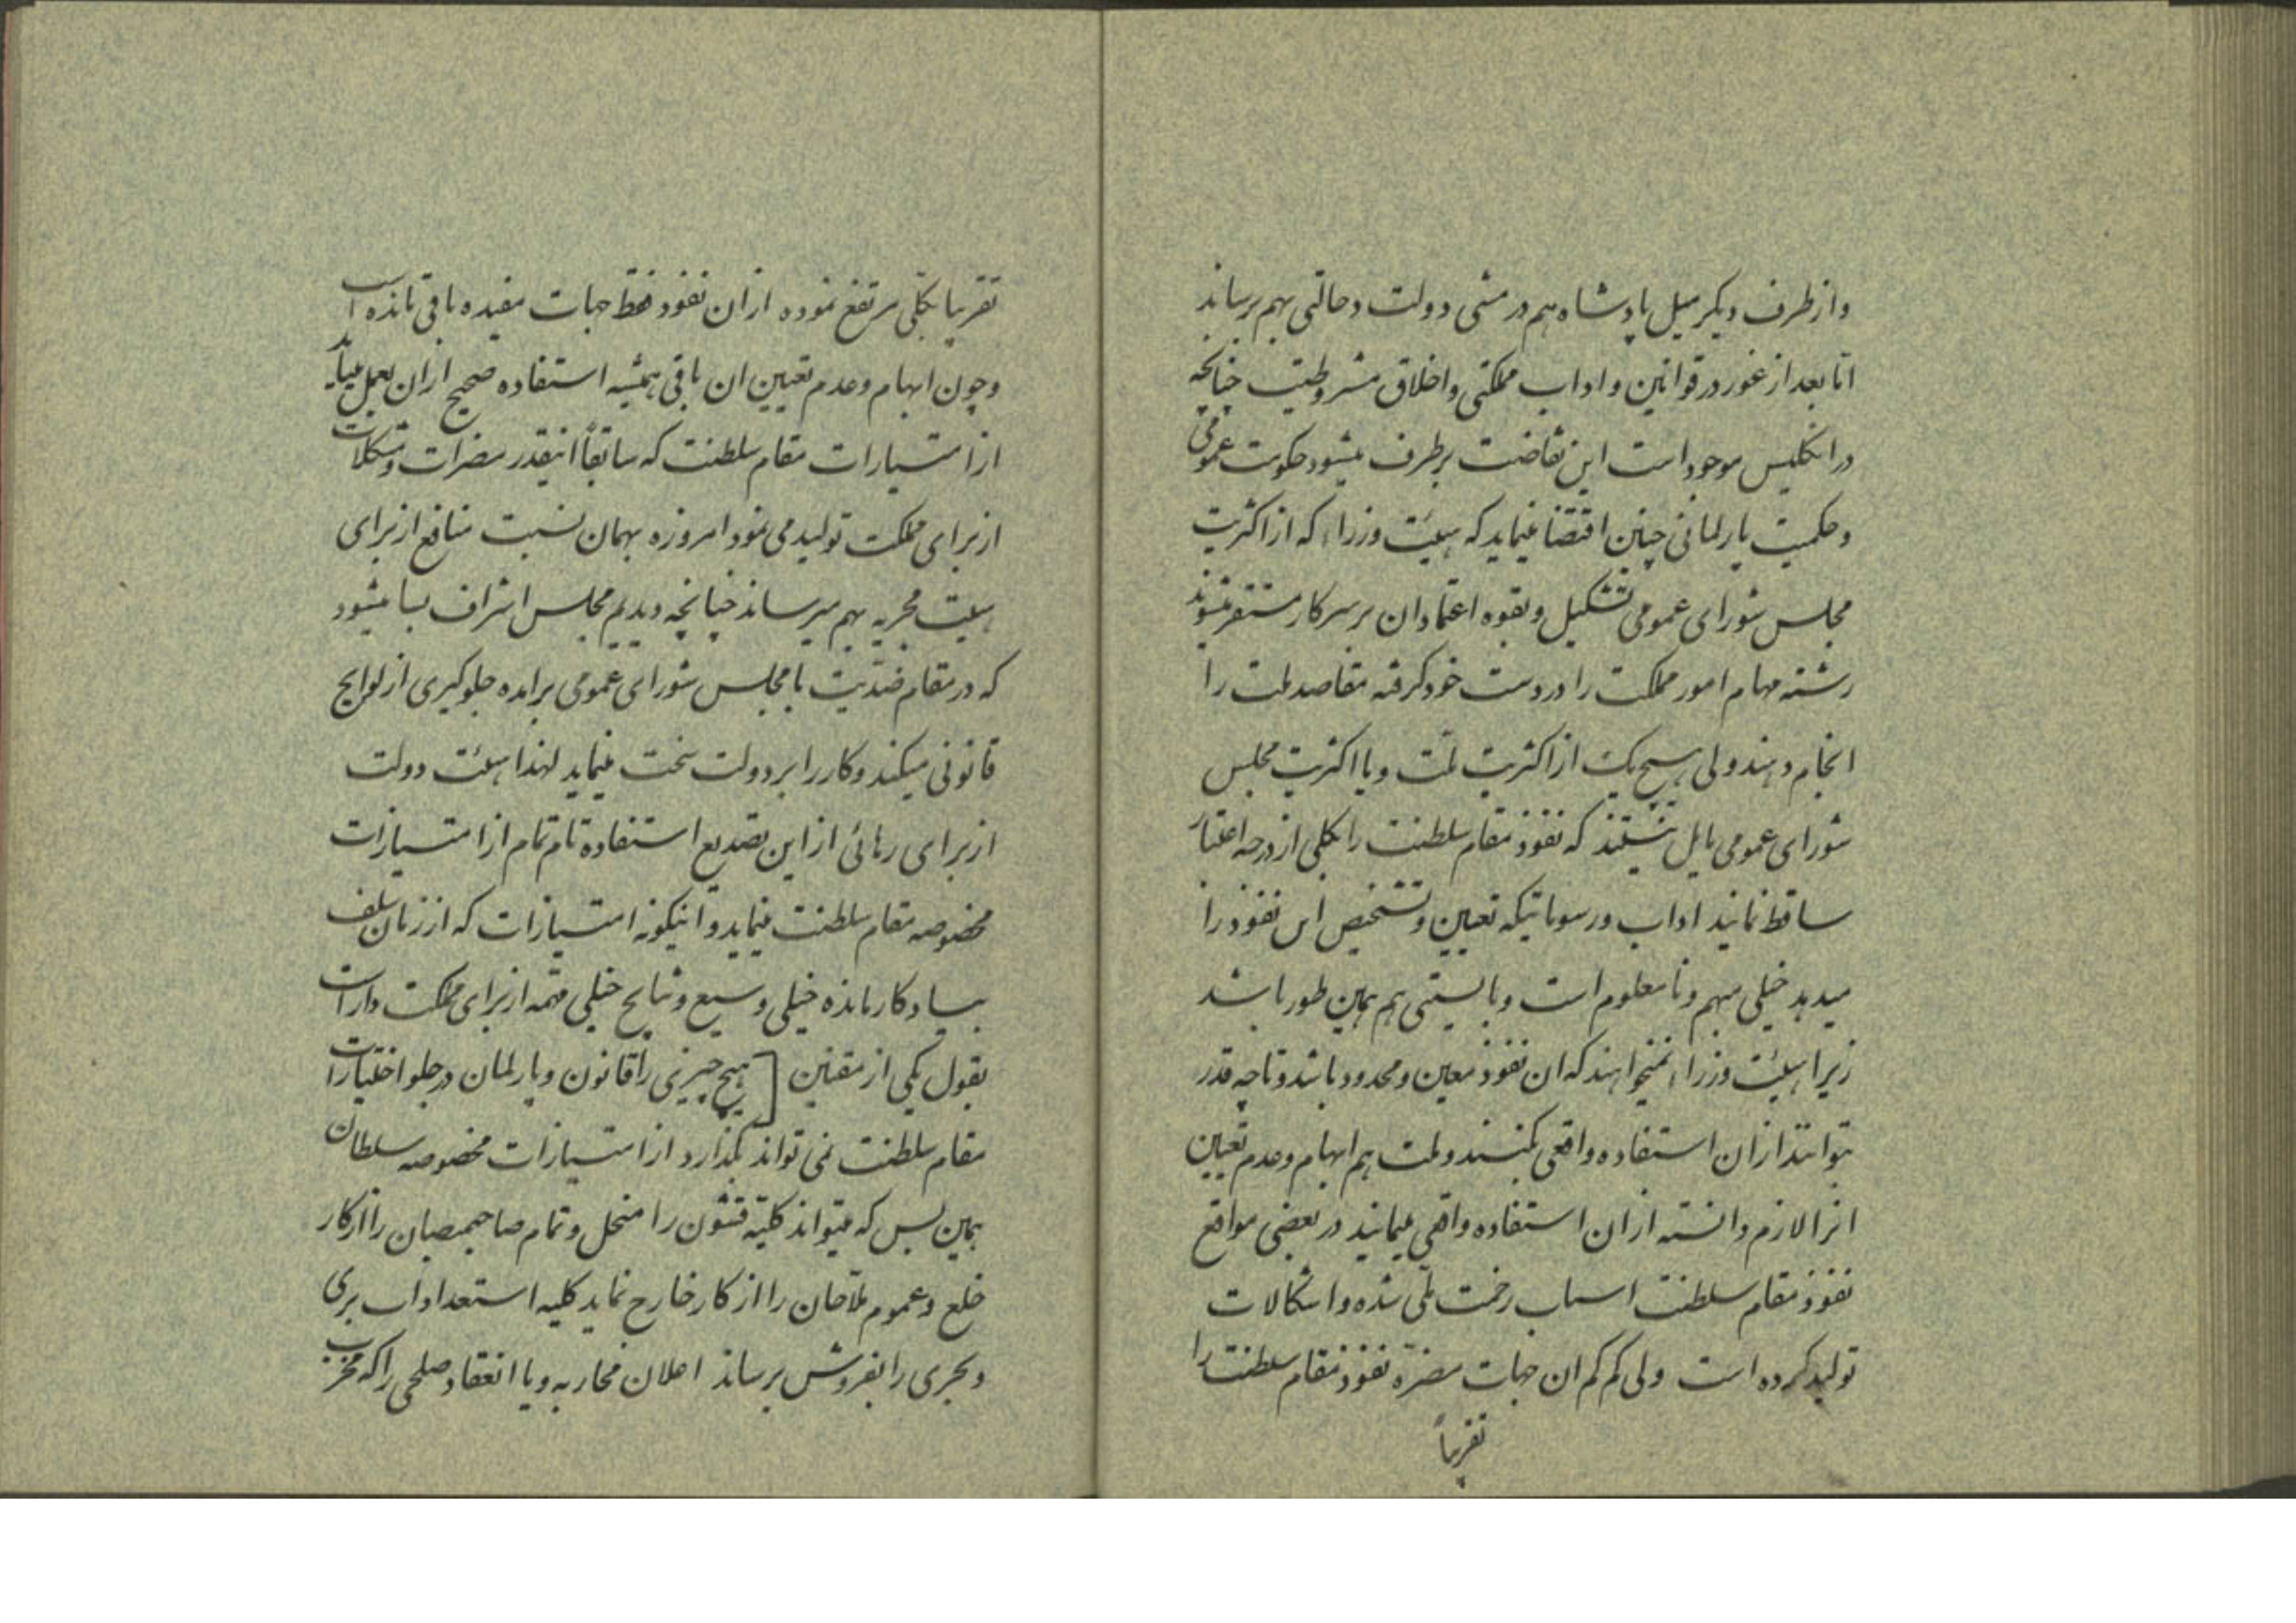 واز طرف دیگر میل پادشاه هم در مشی دولت دخالتی بهم برساند
امّا بعد از غور در قوانین و اداب مملکتی و اخلاق مشروطیت چنانچه
در انگلیس موجود است این تناقضت برطرف میشود حکومت عمومی
و حکمیت پارلمانی چنین اقتضا مینماید که هیئت وزراء که از اکثریت
مجلس شورای عمومی تشکیل و بقوه اعتماد ان بر سر کار مستقر میشوند
رشته مهام امور مملکت را در دست خود گرفته مقاصد ملت را
انجام دهند ولی هیچ یک از اکثریت ملّت و یا اکثریت مجلس
شورای عمومی مایل نیستند که نفوذ مقام سلطنت را بکلی از درجه اعتبار
ساقط نمایند اداب و رسوماتیکه تعیین و تشخیص این نفوذ را
میدهد خیلی مبهم و نا معلوم است و بایستی هم همین طور باشد
زیرا هیئت وزراء نمیخواهند که ان نفوذ معین و محدود باشد و تا چه قدر
بتوانند ازان استفاده واقعی بکنند و ملت هم ابهام و عدم تعیین
انرا لازم دانسته ازان استفاده واقعی مینمایند در بعضی مواقع
نفوذ مقام سلطنت اسباب زحمت ملّی شده و اشکالات
تولید کرده است ولی کم کم ان جهات مضرهٔ نفوذ مقام سلطنت را
تقریباً
تقریبا بکلی مرتفع نموده ازان نفوذ فقط جهات مفیده باقی مانده است
و چون ابهام و عدم تعیین ان باقی همیشه استفاده صحیح ازان بعمل میآید
از امتیازات مقام سلطنت که سابقاً اینقدر مضرات و مشکلات
از برای مملکت تولید می نمود امروزه بهمان نسبت منافع از برای
هیئت مجریه بهم میرساند چنانچه دیدیم مجلس اشراف بسا میشود
که در مقام ضدّیت با مجلس شورای عمومی برامده جلوگیری از لوایح
قانونی میکند و کار را بر دولت سخت مینماید لهذا هیئت دولت
از برای رهائی از این تصدیع استفاده تام تمام از امتیازات
مخصوصه مقام سلطنت مینماید و اینگونه امتیازات که از زمان سلف
بیادگار مانده خیلی وسیع و نتایج خیلی مهمّه از برای مملکت دارد
بقول یکی از مقنین [هیچ چیزی را قانون و پارلمان در جلو اختیارات
مقام سلطنت نمی تواند بگذارد از امتیازات مخصوصه سلطان
همین بس که میتواند کلیّه قشون را منحل و تمام صاحبمنصبان را از کار
خلع و عموم ملاحان را از کار خارج نماید کلیه استعداد اب برّی
و بحری را بفروش برساند اعلان محاربه و یا انعقاد صلحی را که مخرب